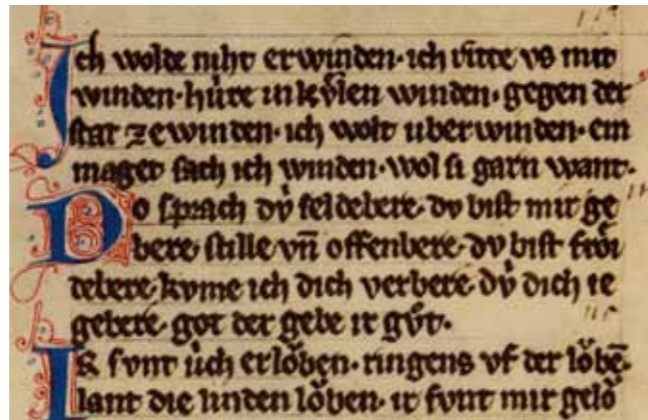 Ich wolde niht erwinden· ich ritte vs mit
winden· hu̍re in kv̍len winden· gegen der
stat ze winden· ich wolt uber winden· ein
maget sach ich winden· wol si garn want·
Do sprach dv̍ seldebere· dv bist mir ge
bere· stille vn̄ offenbere· dv bist froͥi
debere· kvme ich dich verbere· dv̍ dich ie
gebere· got der gebe ir gv̊t·
Ir svnt u̍ch erloͮben· ringens vf der loͮbē·
lant die linden loͮben· ir svnt mir geloͮ